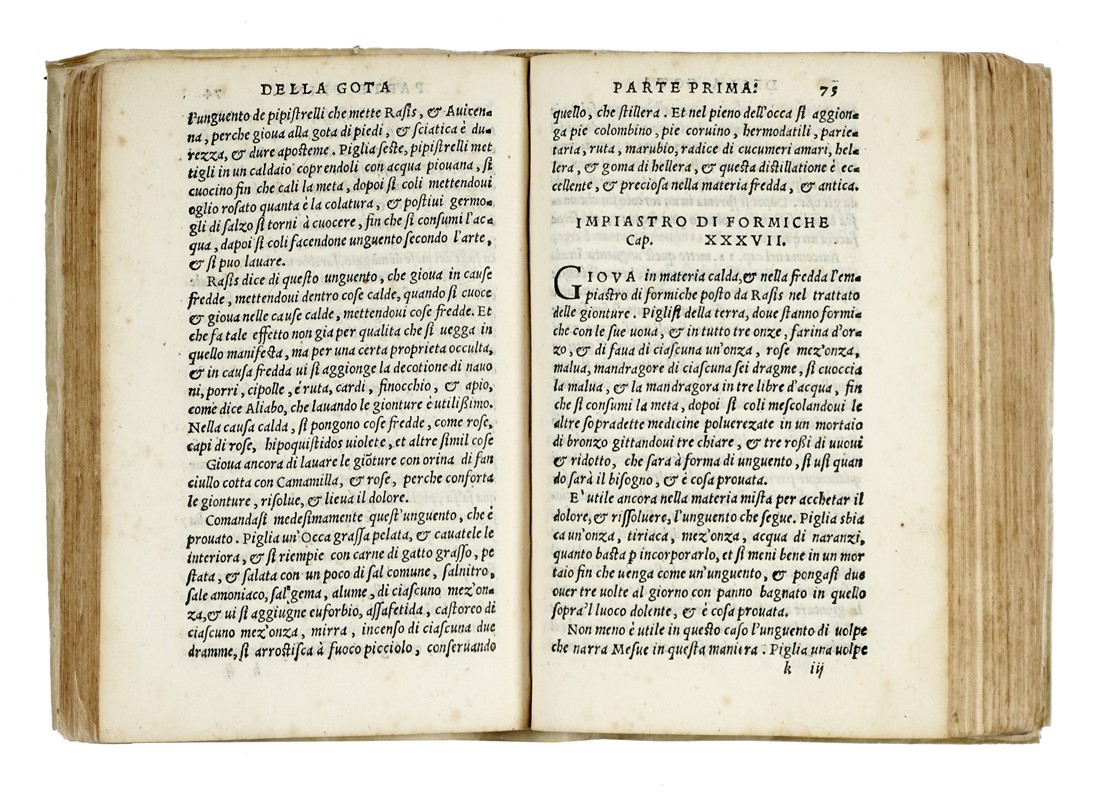 DELLA GOTA
l'unguento de pipistrelli che mette Rasis, & Auicen=
na, perche gioua alla gota di piedi, & sciatica è du=
rezza, & dure aposteme. Piglia seste, pipistrelli met
tigli in un caldaio coprendoli con acqua piouana, si
cuocino fin che cali la meta, dopoi si coli mettendoui
oglio rosato quanta è la colatura, & postiui germo=
gli di salzo si torni à cuocere, fin che si consumi l'ac
qua, dapoi si coli facendone unguento secondo l'arte,
& si puo lauare.
Rasis dice di questo unguento, che gioua in cause
fredde, mettendoui dentro cose calde, quando si cuoce
& gioua nelle cause calde, mettendoui cose fredde. Et
che fa tale effetto non gia per qualita che si uegga in
quello manifesta, ma per una certa proprieta occulta,
& in causa fredda ui si aggionge la decotione di nauo
ni, porri, cipolle, é ruta, cardi, finocchio, & apio,
come dice Aliabo, che lauando le gionture è utilissimo.
Nella causa calda, si pongono cose fredde, come rose,
capi di rose, hipoquistidos uiolete, et altre simil cose
Gioua ancora di lauare le giōture con orina di fan
ciullo cotta con Camamilla, & rose, perche conforta
le gionture, risolue, & lieua il dolore.
Comandasi medesimamente quest'unguento, che è
prouato. Piglia un'Occa grassa pelata, & cauatele le
interiora, & si riempie con carne di gatto grasso, pe
stata, & salata con un poco di sal comune, salnitro,
sale amoniaco, sal gema, alume, di ciascuno mez'on=
za, & ui si aggiugne euforbio, assafetida, castorco di
ciascuno mez'onza, mirra, incenso di ciascuna due
dramme, si arrostisca à fuoco picciolo, conseruando
PARTE PRIMA. 75
quello, che stillera. Et nel pieno dell'occa si aggion=
ga pie colombino, pie coruino, hermodatili, parie=
taria, ruta, marubio, radice di cucumeri amari, hel=
lera, & goma di hellera, & questa distillatione è ec=
cellente, & preciosa nella materia fredda, & antica.
IMPIASTRO DI FORMICHE
Cap. XXXVII.
GIOVA in materia calda, & nella fredda l'em=
piastro di formiche posto da Rasis nel trattato
delle gionture. Piglisi della terra, doue stanno formi=
che con le sue uoua, & in tutto tre onze, farina d'or=
zo, & di faua di ciascuna un'onza, rose mez'onza,
malua, mandragore di ciascuna sei dragme, si cuoccia
la malua, & la mandragora in tre libre d'acqua, fin
che si consumi la meta, dopoi si coli mescolandoui le
altre sopradette medicine poluerezate in un mortaio
di bronzo gittandoui tre chiare, & tre rossi di uuoui
& ridotto, che sara à forma di unguento, si usi quan
do sarà il bisogno, & è cosa prouata.
E' utile ancora nella materia mista per acchetar il
dolore, & rissoluere, l'unguento che segue. Piglia sbia
ca un'onza, tiriaca, mez'onza, acqua di naranzi,
quanto basta p incorporarlo, et si meni bene in un mor
taio fin che uenga come un'unguento, & pongasi due
ouer tre volte al giorno con panno bagnato in quello
sopra'l luoco dolente, & è cosa prouata.
Non meno è utile in questo caso l'unguento di uolpe
che narra Mesue in questa maniera. Piglia una uolpe
k iij